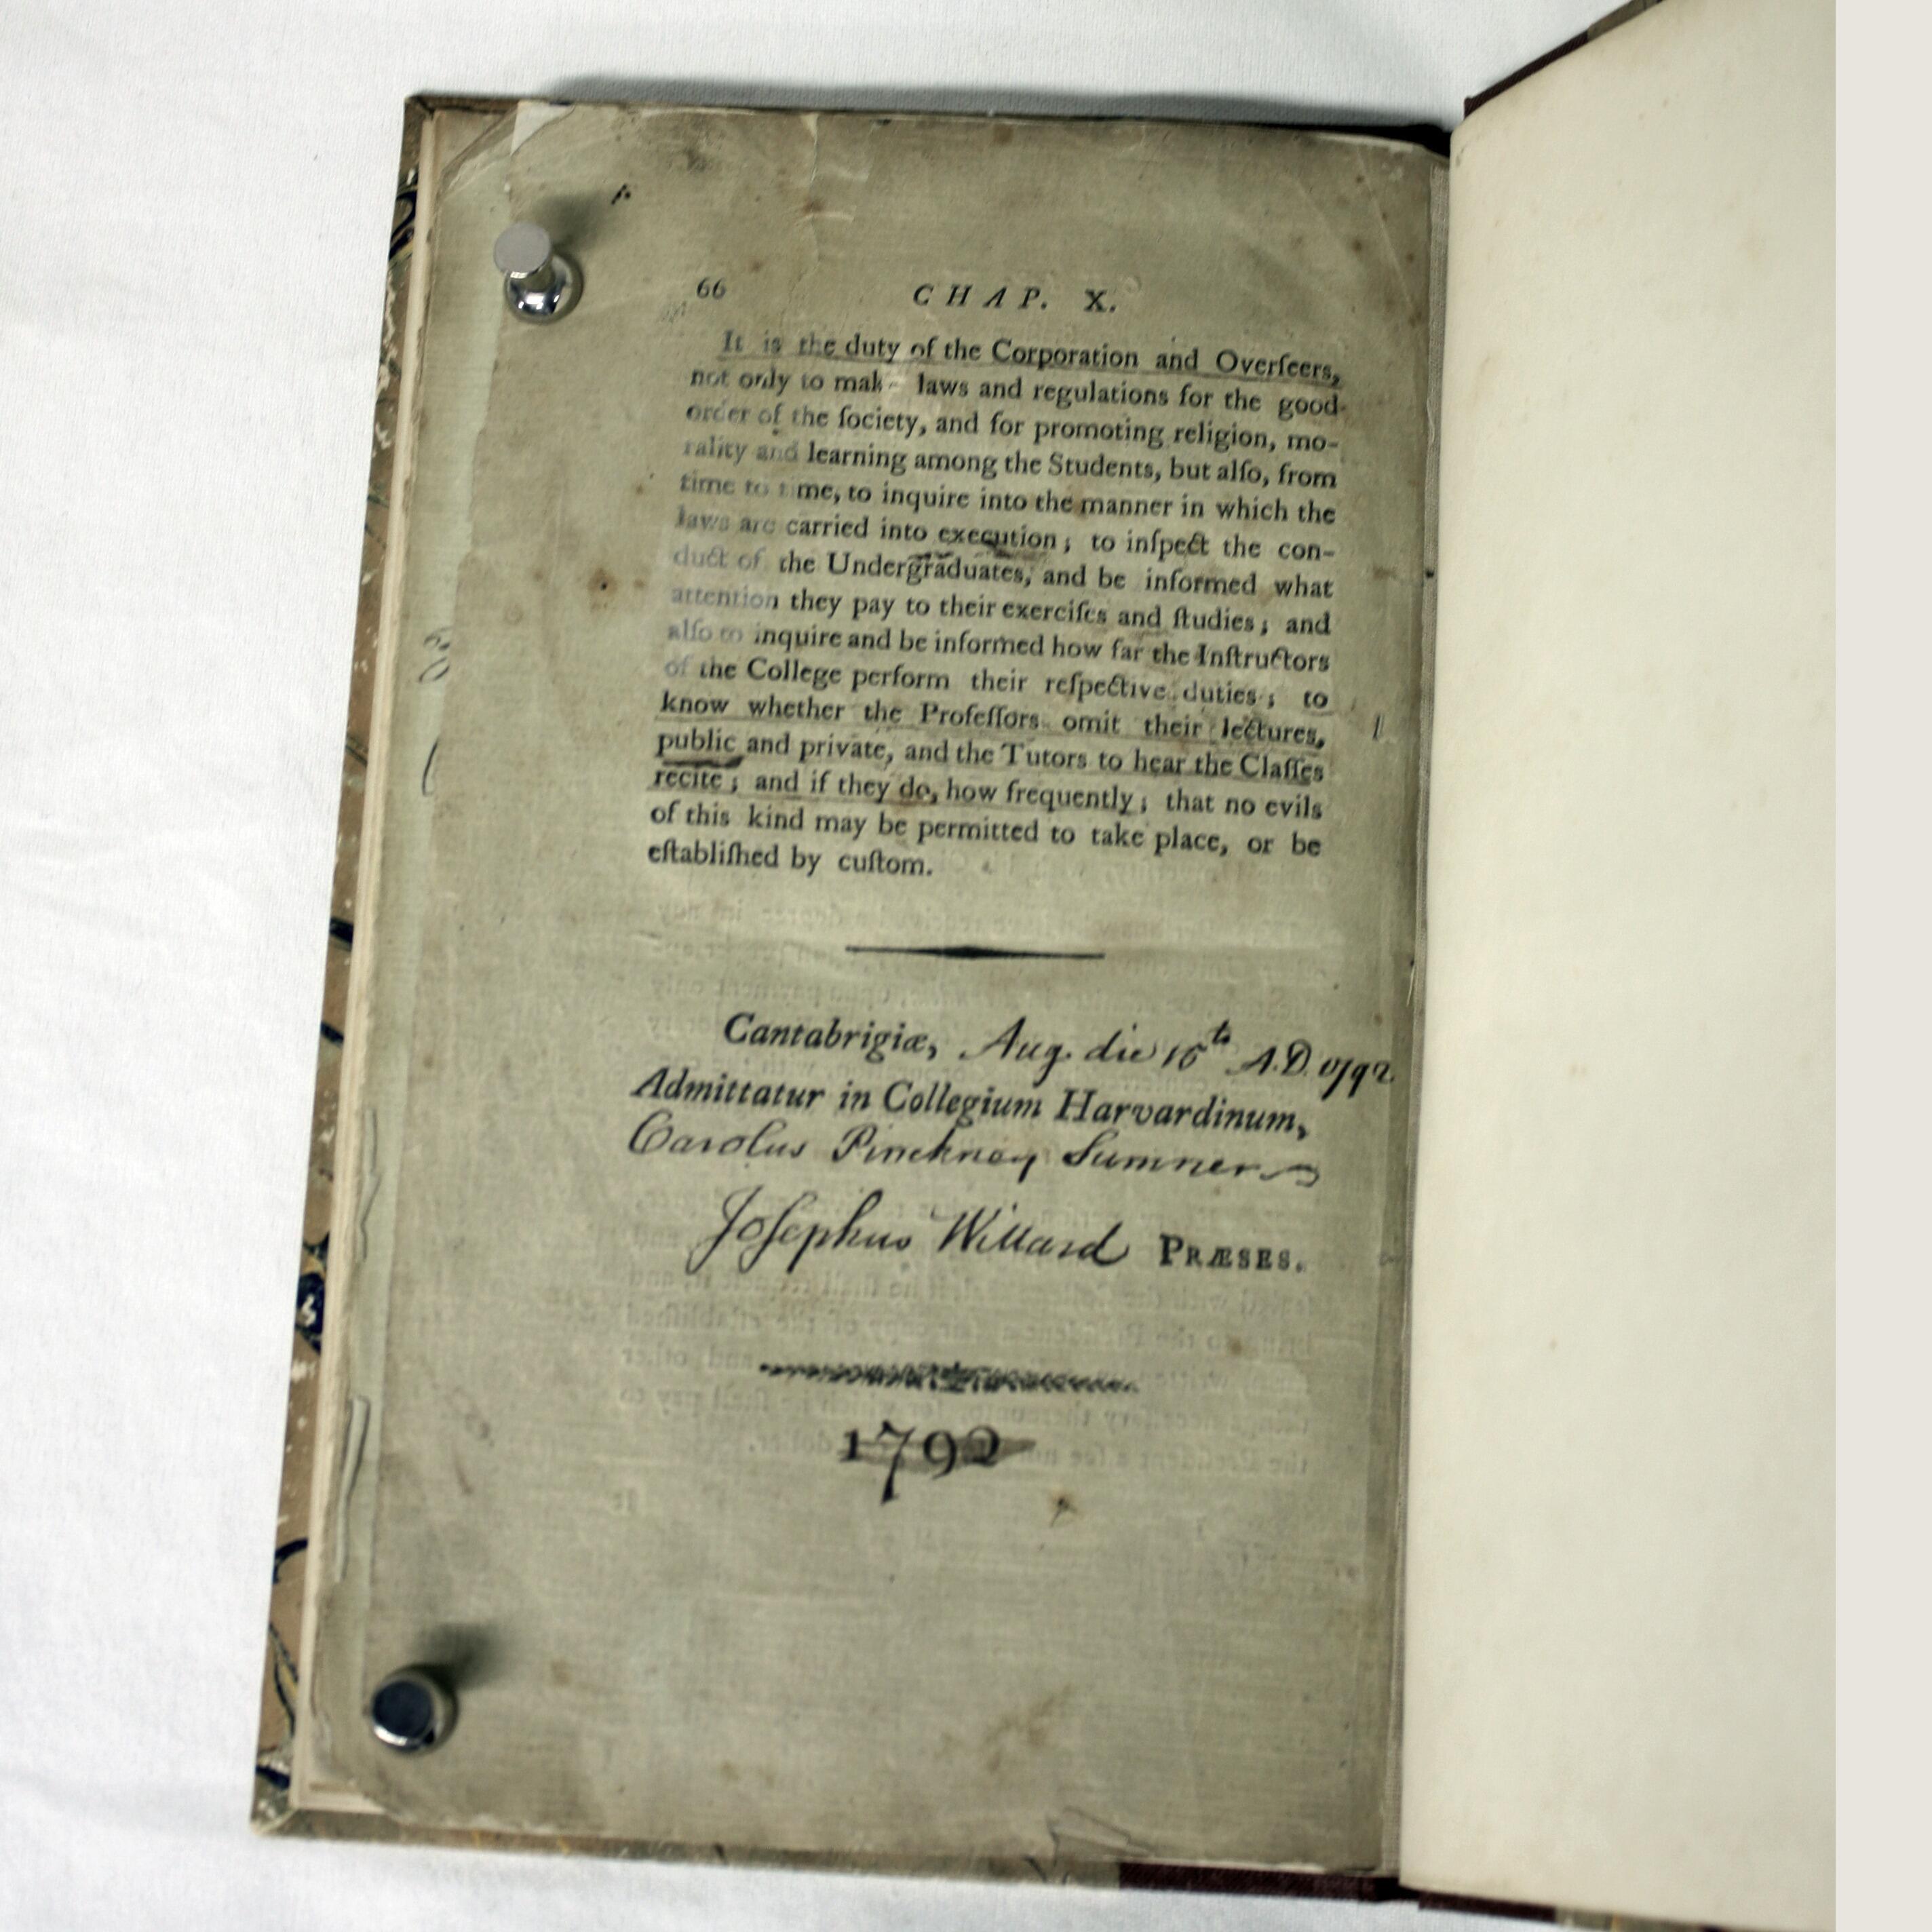 66 CHAP. X.
It is the duty of the Corporation and Overſeers,
not only to mak laws and regulations for the good
order of the ſociety, and for promoting religion, mo-
rality and learning among the Students, but alſo, from
time to time, to inquire into the manner in which the
laws are carried into execution; to inſpect the con-
duct of the Undergraduates, and be informed what
attention they pay to their exerciſes and ſtudies; and
alſo to inquire and be informed how far the Inſtructors
of the College perform their reſpective duties; to
know whether the Profeſſors omit their lectures,
public and private, and the Tutors to hear the Claſſes
recite; and if they do, how frequently; that no evils
of this kind may be permitted to take place, or be
eſtabliſhed by cuſtom.
Cantabrigiæ, Aug. die 16to A.D. 1792
Admittatur in Collegium Harvardinum,
Carolus Pinckney Sumner
Joſephus Willard PRÆSES.
1792